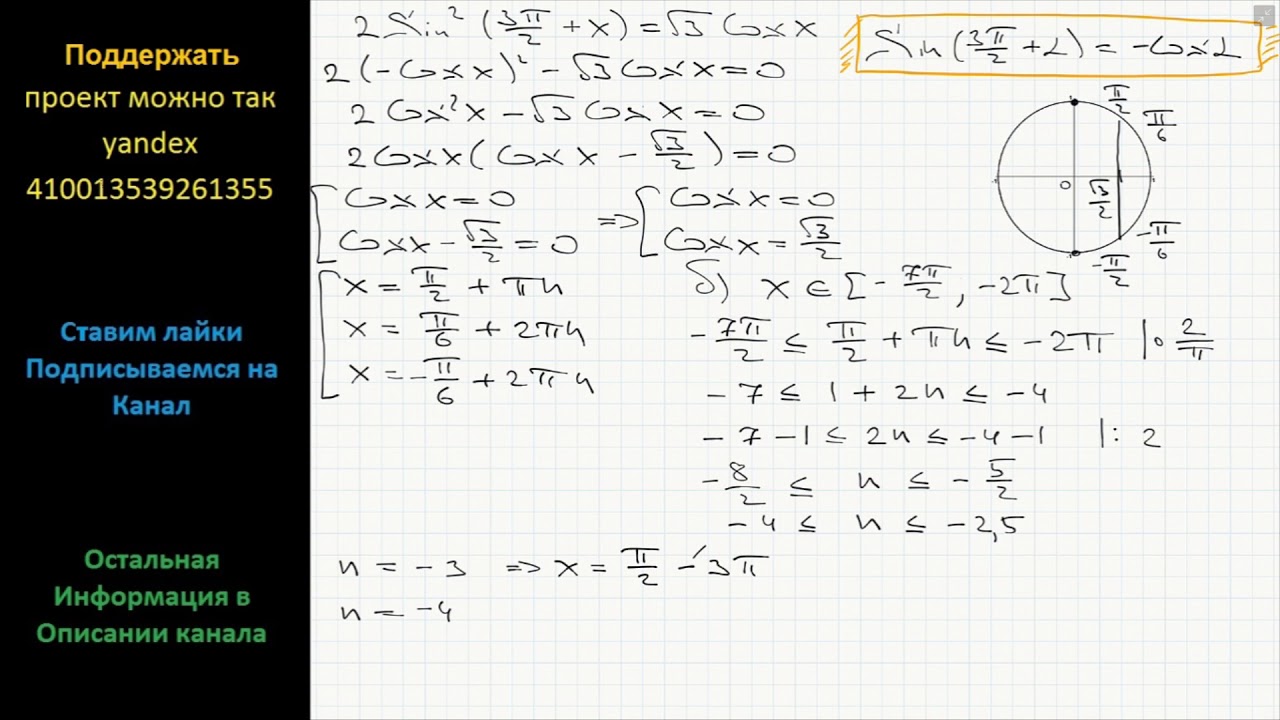 Поддержать
проект можно так
yandex
410013539261355
Ставим лайки
Подписываемся на
Канал
Остальная
Информация в
Описании канала
2 Sin² (3π/2 + x) = √3 Cos x
2 (-Cos x)² - √3 Cos x = 0
2 Cos² x - √3 Cos x = 0
2 Cos x (Cos x - √3/2) = 0
[ Cos x = 0 => [ Cos x = 0
Cos x - √3/2 = 0 Cos x = √3/2
[ x = π/2 + πn
x = π/6 + 2πn
x = -π/6 + 2πn
Sin (3π/2 + α) = -Cos α
π/2
π/6
0
√3/2
-π/6
-π/2
б) x ∈ [-7π/2, -2π]
-7π/2 ≤ π/2 + πn ≤ -2π |∘ 2/π
-7 ≤ 1 + 2n ≤ -4
-7 -1 ≤ 2n ≤ -4 -1 |: 2
-8/2 ≤ n ≤ -5/2
-4 ≤ n ≤ -2,5
n = -3 => x = π/2 - 3π
n = -4